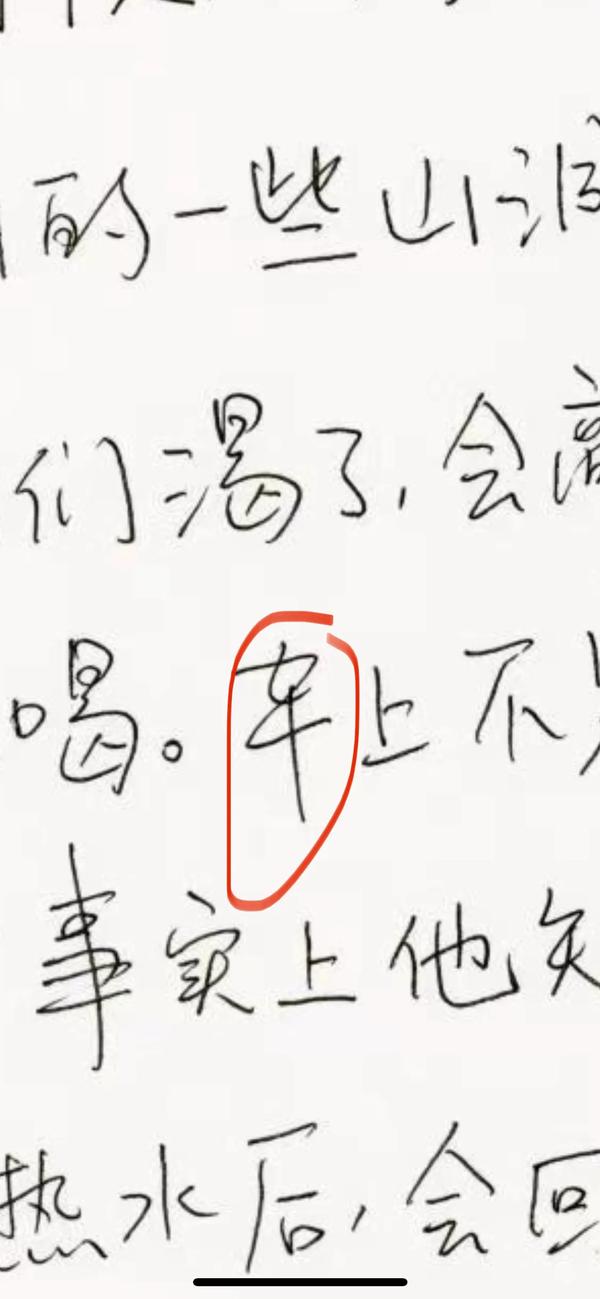 的一些山涧
们渴了,会高
喝。车上不
事实上他矢
热水后,会回